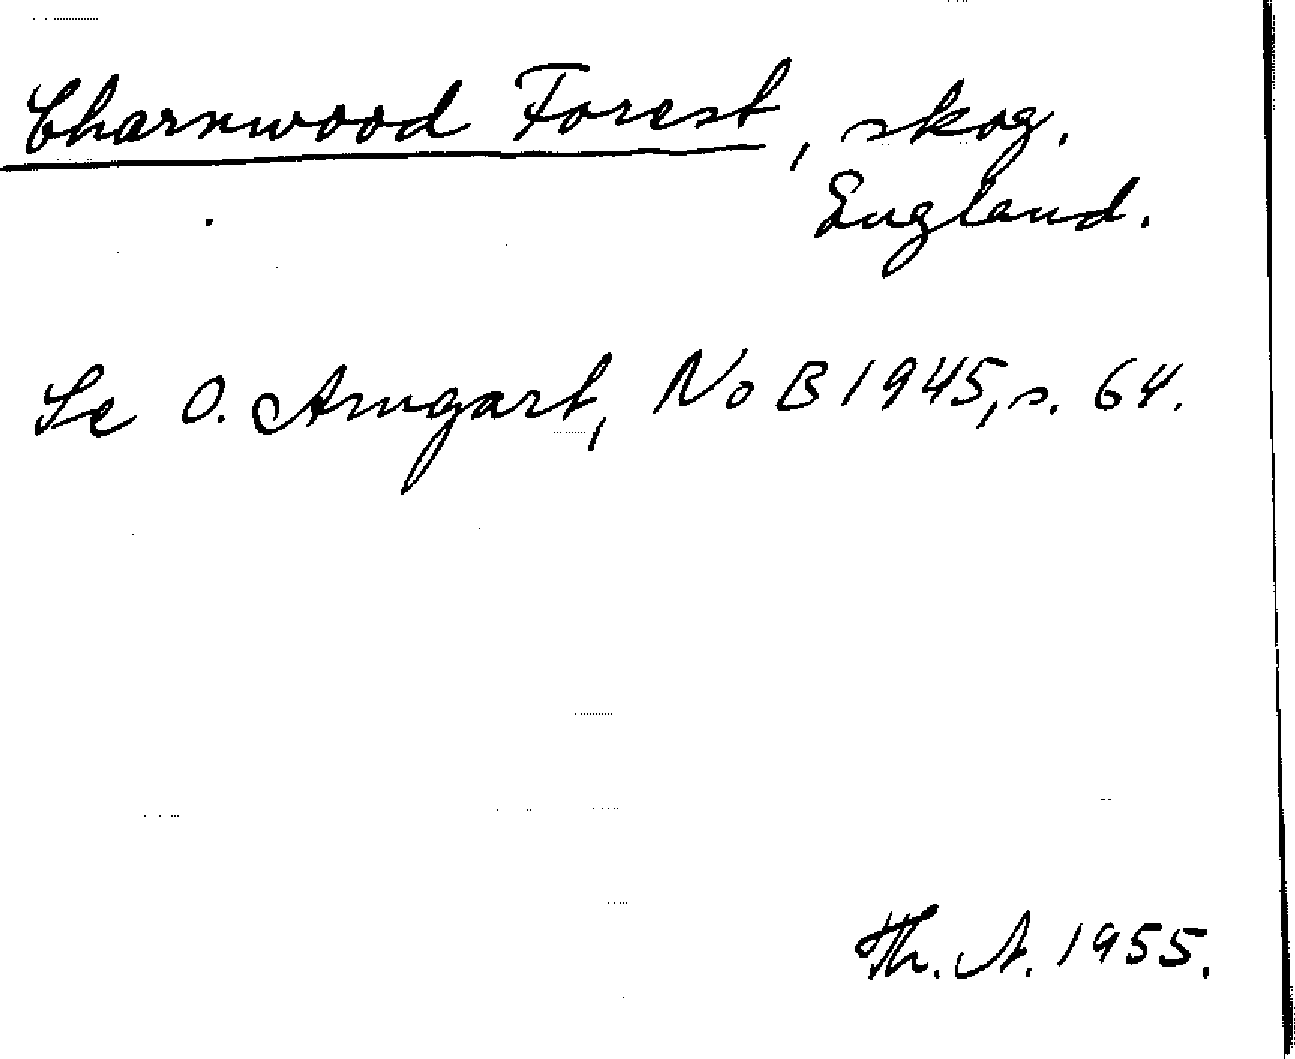 Charnwood Forest, skog.
England.
Se O. Arngart, NoB 1945, s. 64.
Th. A. 1955.